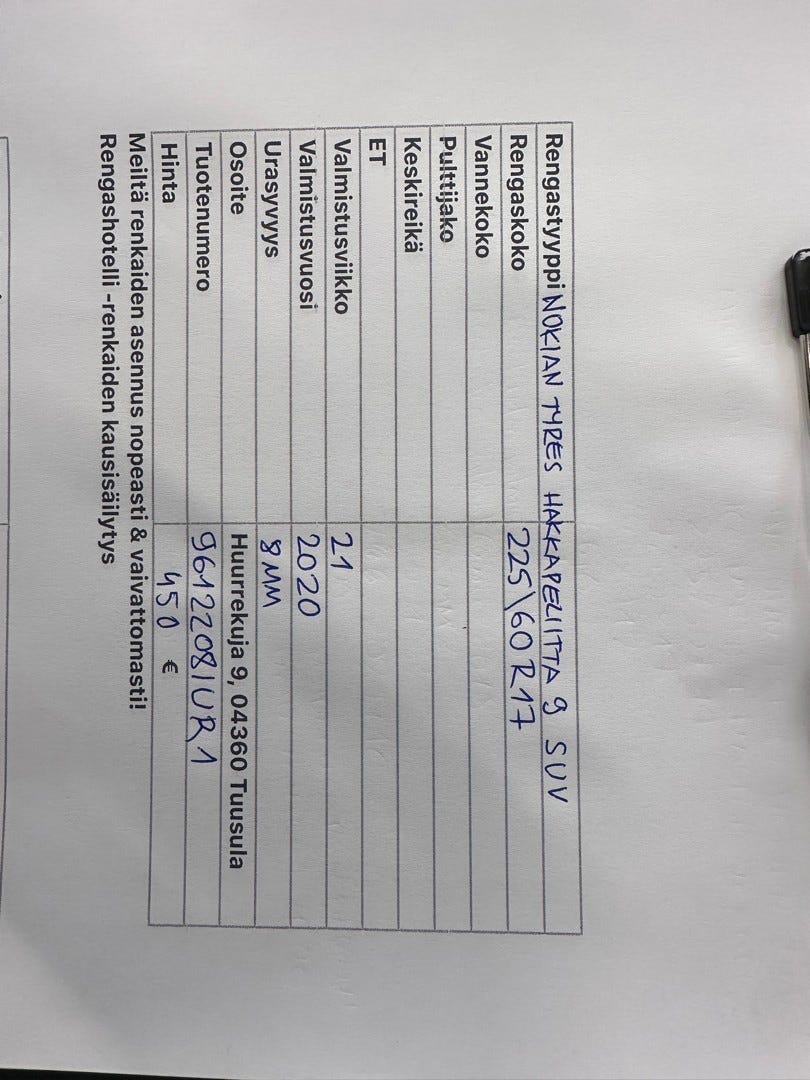 Rengastyyppi NOKIAN TYRES HAKKAPELIITTA 9 SUV
Rengaskoko 225\60 R17
Vannekoko
Pulttijako
Keskireikä
ET
Valmistusviikko 21
Valmistusvuosi 2020
Urasyvyys 8 MM
Osoite Huurrekuja 9, 04360 Tuusula
Tuotenumero 9612208IUR1
Hinta 450 €
Meiltä renkaiden asennus nopeasti & vaivattomasti!
Rengashotelli -renkaiden kausisäilytys